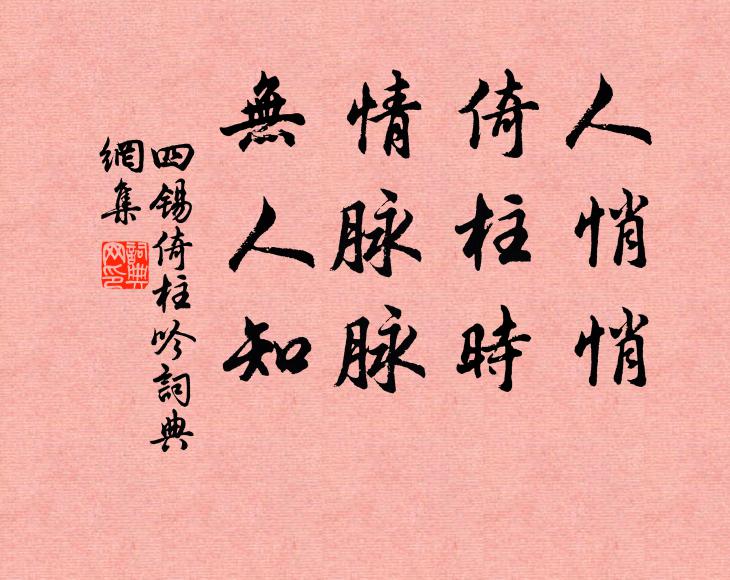 人悄悄
倚柱時
情脉脉
無人知
四錫倚柱吟詞典
網集
詞典网印